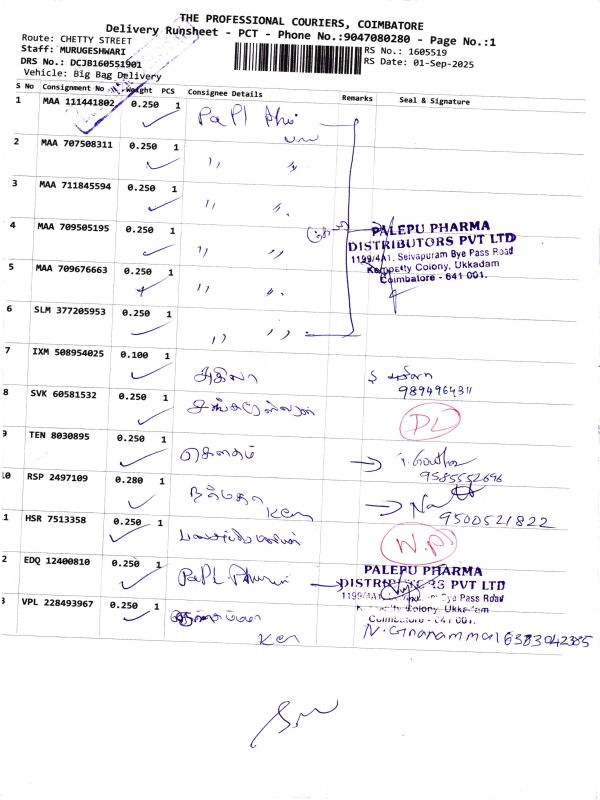 THE PROFESSIONAL COURIERS, COIMBATORE
Delivery Runsheet - PCT - Phone No.:9047080280 - Page No.:1
Route: CHETTY STREET
Staff: MURUGESHWARI
RS No.: 1605519
DRS No.: DCJB160551901
RS Date: 01-Sep-2025
Vehicle: Big Bag Delivery
S No Consignment No Weight PCS Consignee Details Remarks Seal & Signature
1 MAA 111441802 0.250 1
2 MAA 707508311 0.250 1 ,, ,,
3 MAA 711845594 0.250 1 ,, ,,
4 MAA 709505195 0.250 1 ,, ,,
PALEPU PHARMA
DISTRIBUTORS PVT LTD
1199/4A1, Selvapuram Bye Pass Road
Kempatty Colony, Ukkadam
Coimbatore - 641 001.
5 MAA 709676663 0.250 1 ,, ,,
6 SLM 377205953 0.250 1 ,, ,,
7 IXM 508954025 0.100 1 அகிலா
9894964311
8 SVK 60581532 0.250 1
DL
9 TEN 8030895 0.250 1 கௌதம்
9585552696
10 RSP 2497109 0.280 1
9500521822
1 HSR 7513358 0.250 1
N.P
2 EDQ 12400810 0.250 1
PALEPU PHARMA
DISTRIBUTORS PVT LTD
1199/4A1 Bye Pass Road
Colony, Ukkadam
Coimbatore - 641 001.
3 VPL 228493967 0.250 1
N. Gnanammal 6383042385